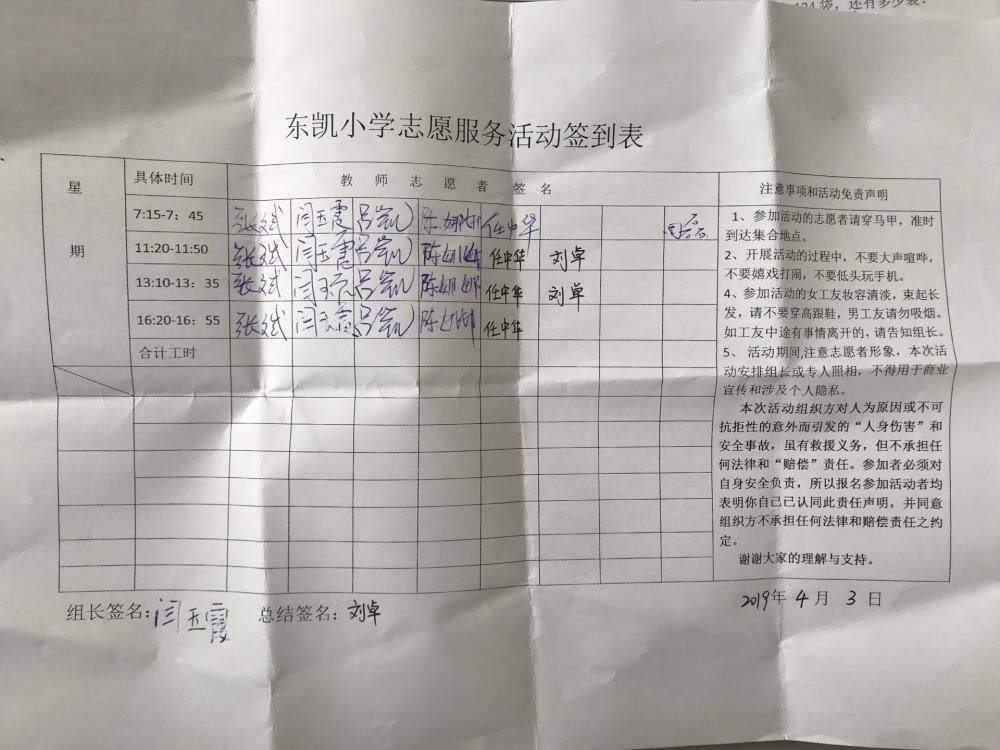 124袋，还有多少袋？
东凯小学志愿服务活动签到表
星期
具体时间 教师志愿者签名 注意事项和活动免责声明
7:15-7：45 张斌 闫玉霞 吕凯 任中华
11:20-11:50 张斌 闫玉霞 吕凯 任中华 刘卓
13:10-13：35 张斌 吕凯 任中华 刘卓
16:20-16：55 张斌 吕凯 任中华
合计工时
1、参加活动的志愿者请穿马甲，准时
到达集合地点。
2、开展活动的过程中，不要大声喧哗，
不要嬉戏打闹，不要低头玩手机。
4、参加活动的女工友妆容清淡，束起长
发，请不要穿高跟鞋，男工友请勿吸烟。
如工友中途有事情离开的，请告知组长。
5、 活动期间,注意志愿者形象，本次活
动安排组长或专人照相，不得用于商业
宣传和涉及个人隐私。
本次活动组织方对人为原因或不可
抗拒性的意外而引发的“人身伤害”和
安全事故，虽有救援义务，但不承担任
何法律和“赔偿”责任。参加者必须对
自身安全负责，所以报名参加活动者均
表明你自己已认同此责任声明，并同意
组织方不承担任何法律和赔偿责任之约
定。
谢谢大家的理解与支持。
组长签名:闫玉霞 总结签名：刘卓 2019年 4 月 3 日